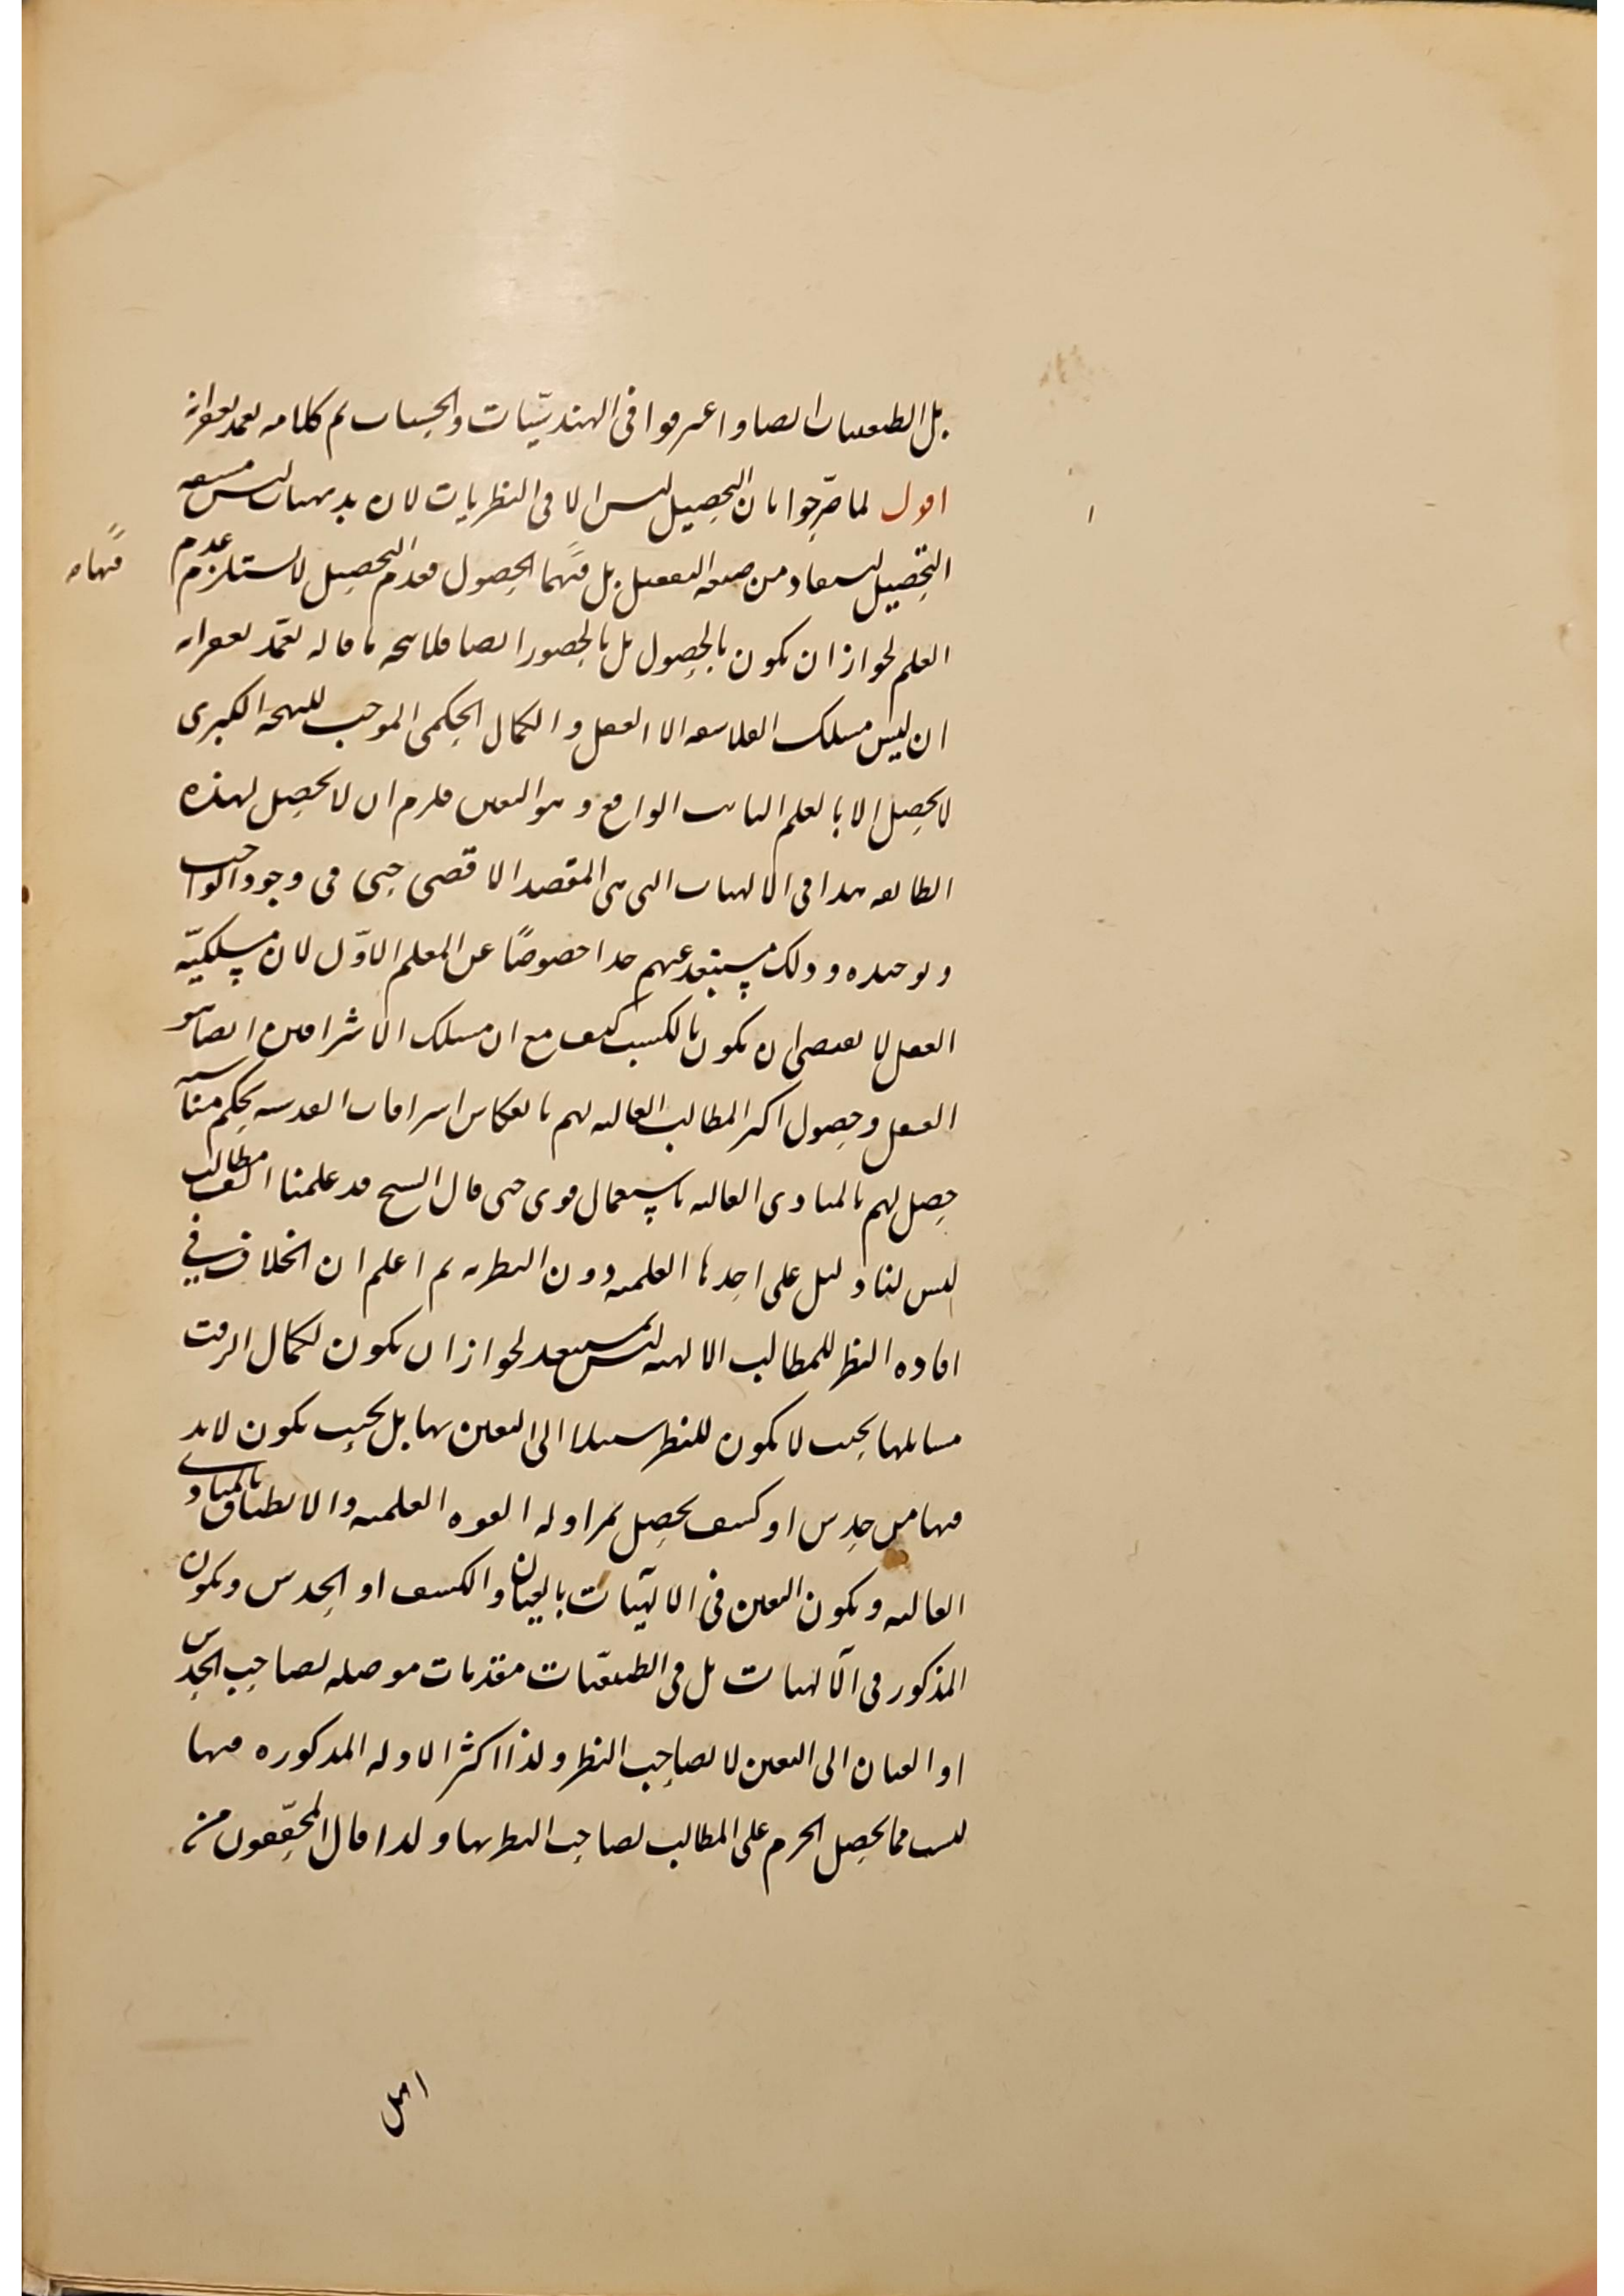 بل الطبيعيات ايضا واعترفوا فى الهندسيّات والحسابيات تم كلامه تغمد بغفرانه
اقول لما صرّحوا بان التحصيل ليس الا فى النظريات لان بديهيات ليس
التحصيل يستفاد من صيغة التفعيل بل فيهما الحصول فعدم التحصيل لا يستلزم عدم
فيها مـ
العلم لجواز ان يكون بالحصول بل بالحضور ايضا فلا يتجه ما قاله تغمد بغفرانه
ان ليس مسلك الفلاسفة الا العقل والكمال الحكمى الموجب للبهجة الكبرى
لا يحصل الا بالعلم الثابت الواقع وهو اليقين فلزم ان لا يحصل لهذه
الطائفة هذا فى الالهيات التى هى المقصد الاقصى حتى فى وجود الواجب
وتوحيده وذلك مستبعد عنهم جدا خصوصًا عن المعلم الاوّل لان مسلكيّة
العقل لا يقتضى ان يكون بالكسب كيف مع ان مسلك الاشراقين ايضا هو
العقل وحصول اكثر المطالب العالية لهم بانعكاس اشراقات القدسية بحكم مناسبة
حصل لهم بالمبادى العالية باستعمال قوى حتى قال الشيخ قد علمنا الف مطالب
ليس لنا دليل على احدها العلمية دون النظرية ثم اعلم ان الخلاف في
افادة النظر للمطالب الالهية ليس بمستبعد لجواز ان يكون لكمال الرقت
مسايلها بحيث لا يكون للنظر سبيلا الى اليقين بها بل بحيث يكون لابد
فيها من حدس او كشف يحصل بمزاولة القوة العلمية والانطباق بالمبادى
العالية ويكون اليقين فى الالهيّات بالعيان والكشف او الحدس ويكون
المذكور فى الالهيات بل فى الطبيعيّات مقدمات موصلة لصاحب الحدس
او العيان الى اليقين لا لصاحب النظر ولذا اكثر الادلة المذكورة فيها
ليست مما يحصل الجزم على المطالب لصاحب النظر بها ولذا قال المحقّقون من
اهل